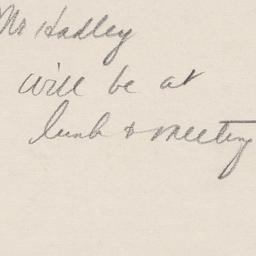 Mr Hadley
will be at
lunch & meeting